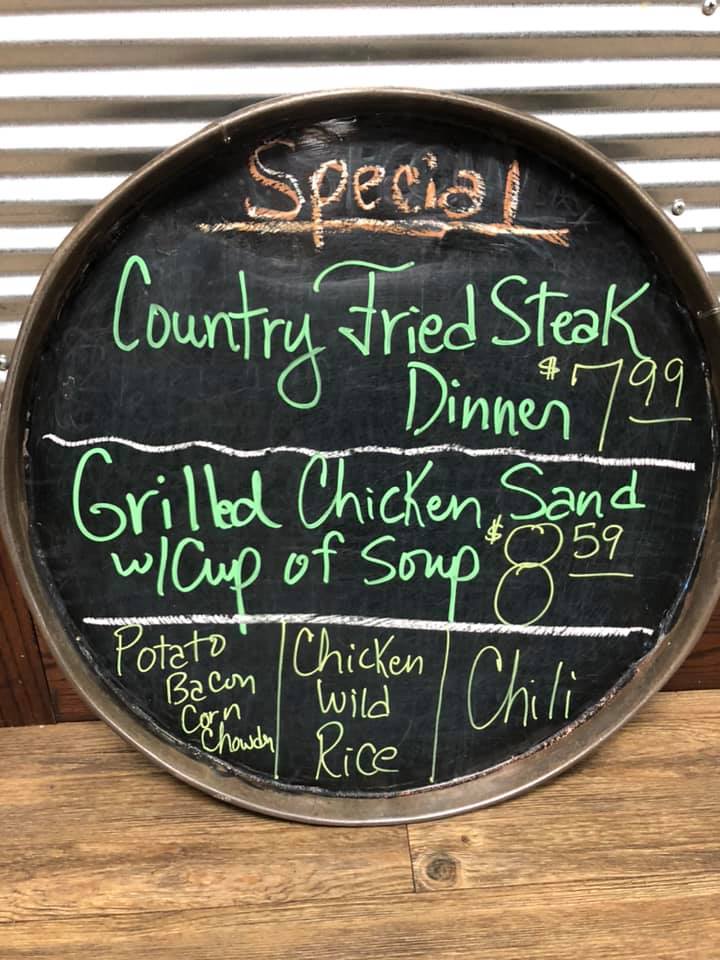 Special
Country Fried Steak
Dinner $7 99
Grilled Chicken Sand
w/Cup of Soup $8 59
Potato
Bacon
Corn
Chowder
Chicken
Wild
Rice
Chili